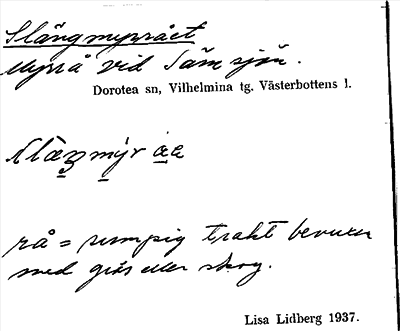 Slångmyrrået
Myrrå vid Såmsjön.
Dorotea sn, Vilhelmina tg. Västerbottens l.
rå = sumpig trakt bevuxen
med gräs eller skog.
Lisa Lidberg 1937.